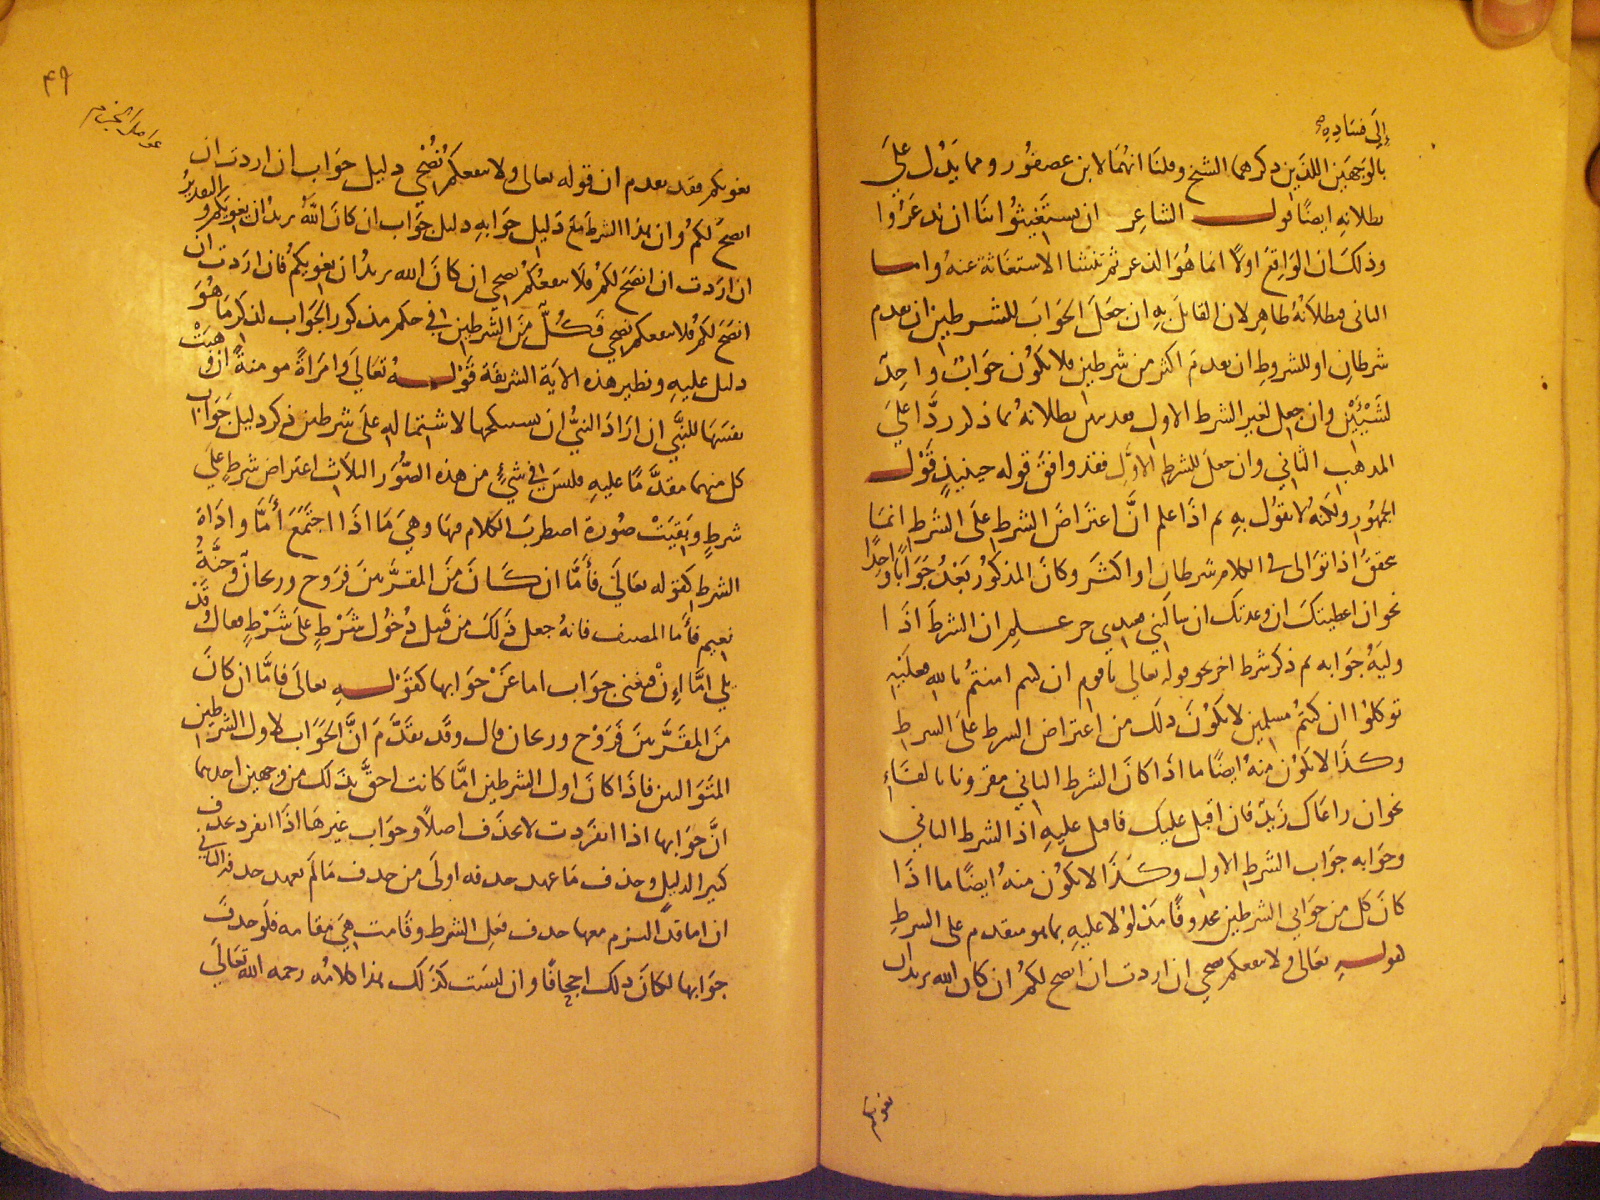 إلى فساده صح
بالوجهين اللذين ذكرهما الشيخ وقلنا انهما لابن عصفور ومما يدل على
بطلانه ايضا قول الشاعر ان يستغيثوا بنا ان تذعروا
وذلك ان الواقع اولا انما هو الذعر ثم تنشا الاستغاثة عنه واما
الثاني فبطلانه ظاهر لان القائل به ان جعل الجواب للشرطين ان تقدم
شرطان او للشروط ان تقدم اكثر من شرطين فلا يكون جواب واحد
لشيئين وان جعل لغير الشرط الاول بطلانه بما ذكر ردا على
المذهب الثاني وان جعل للشرط الاول فقد وافق قوله حينئذ قول
الجمهور ولكنه لا يقول به ثم اذا علم ان اعتراض الشرط على الشرط انما
يحقق اذا توالى في الكلام شرطان او اكثر وكان المذكور بعد جوابا واحدا
نحو ان اعطيتك ان وعدتك ان سالتني فعبدي حر علم ان الشرط اذا
وليه جوابه ثم ذكر شرط اخر نحو قوله تعالى يا قوم ان كنتم امنتم بالله فعليه
توكلوا ان كنتم مسلمين لا يكون ذلك من اعتراض الشرط على الشرط
وكذا لا يكون منه ايضا ما اذا كان الشرط الثاني مقرونا بالفاء
نحو ان راعاك زيد فان اقبل عليك فاقبل عليه اذ الشرط الثاني
وجوابه جواب الشرط الاول وكذا لا يكون منه ايضا ما اذا
كان كل من جوابي الشرطين محذوفا مدلولا عليه بما هو متقدم على الشرط
كقوله تعالى ولا ينفعكم نصحي ان اردت ان انصح لكم ان كان الله يريد ان
يغويكم
٤٩
عوامل الجزم
يغويكم فقد تقدم ان قوله تعالى ولا ينفعكم نصحي دليل جواب ان اردت ان
انصح لكم وان هذا الشرط مع دليل جوابه دليل جواب ان كان الله يريد ان يغويكم والتقدير
ان اردت ان انصح لكم فلا ينفعكم نصحي ان كان الله يريد ان يغويكم فان اردت ان
انصح لكم فلا ينفعكم نصحي فكل من الشرطين في حكم مذكور الجواب لذكر ما هو
دليل عليه ونظير هذه الاية الشريفة قوله تعالى وامراة مومنة ان وهبت
نفسها للنبي ان اراد النبي ان يستنكحها لاشتماله على شرطين ذكر دليل جواب
كل منهما مقدما عليه فليس في شيء من هذه الصور الثلاث اعتراض شرط على
شرط وبقيت صورة اضطرب الكلام فيها وهي ما اذا اجتمع أما واداة
الشرط كقوله تعالى فأما ان كان من المقربين فروح وريحان وجنة
نعيم فأما المصنف فانه جعل ذلك من قبيل دخول شرط على شرط فقال وقد
يلي اما إن فيغني جواب اما عن جوابها كقوله تعالى فاما ان كان
من المقربين فروح وريحان قال وقد تقدم ان الجواب لاول الشرطين
المتواليين فاذا كان اول الشرطين امّا كانت احق بذلك من وجهين احدهما
ان جوابها اذا انفردت لا يحذف اصلا وجواب غيرها اذا انفرد يحذف
كثيرا لدليل وحذف ما عهد حذفه اولى من حذف ما لم يعهد حذفه الثاني
ان اما قد التزم معها حذف فعل الشرط وقامت هي مقامه فلو حذف
جوابها لكان ذلك اجحافا وان ليست كذلك هذا كلامه رحمه الله تعالى